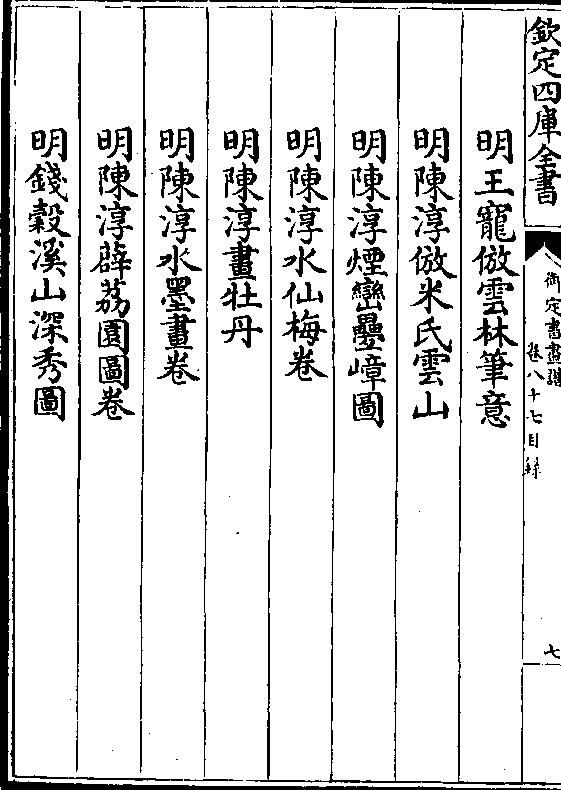 欽定四庫全書
御定書畫譜
卷八十七目録
七
明王寵倣雲林筆意
明陳淳倣米氏雲山
明陳淳煙巒疊嶂圖
明陳淳水仙梅卷
明陳淳畫牡丹
明陳淳水墨畫卷
明陳淳薜荔園圖卷
明錢穀溪山深秀圖